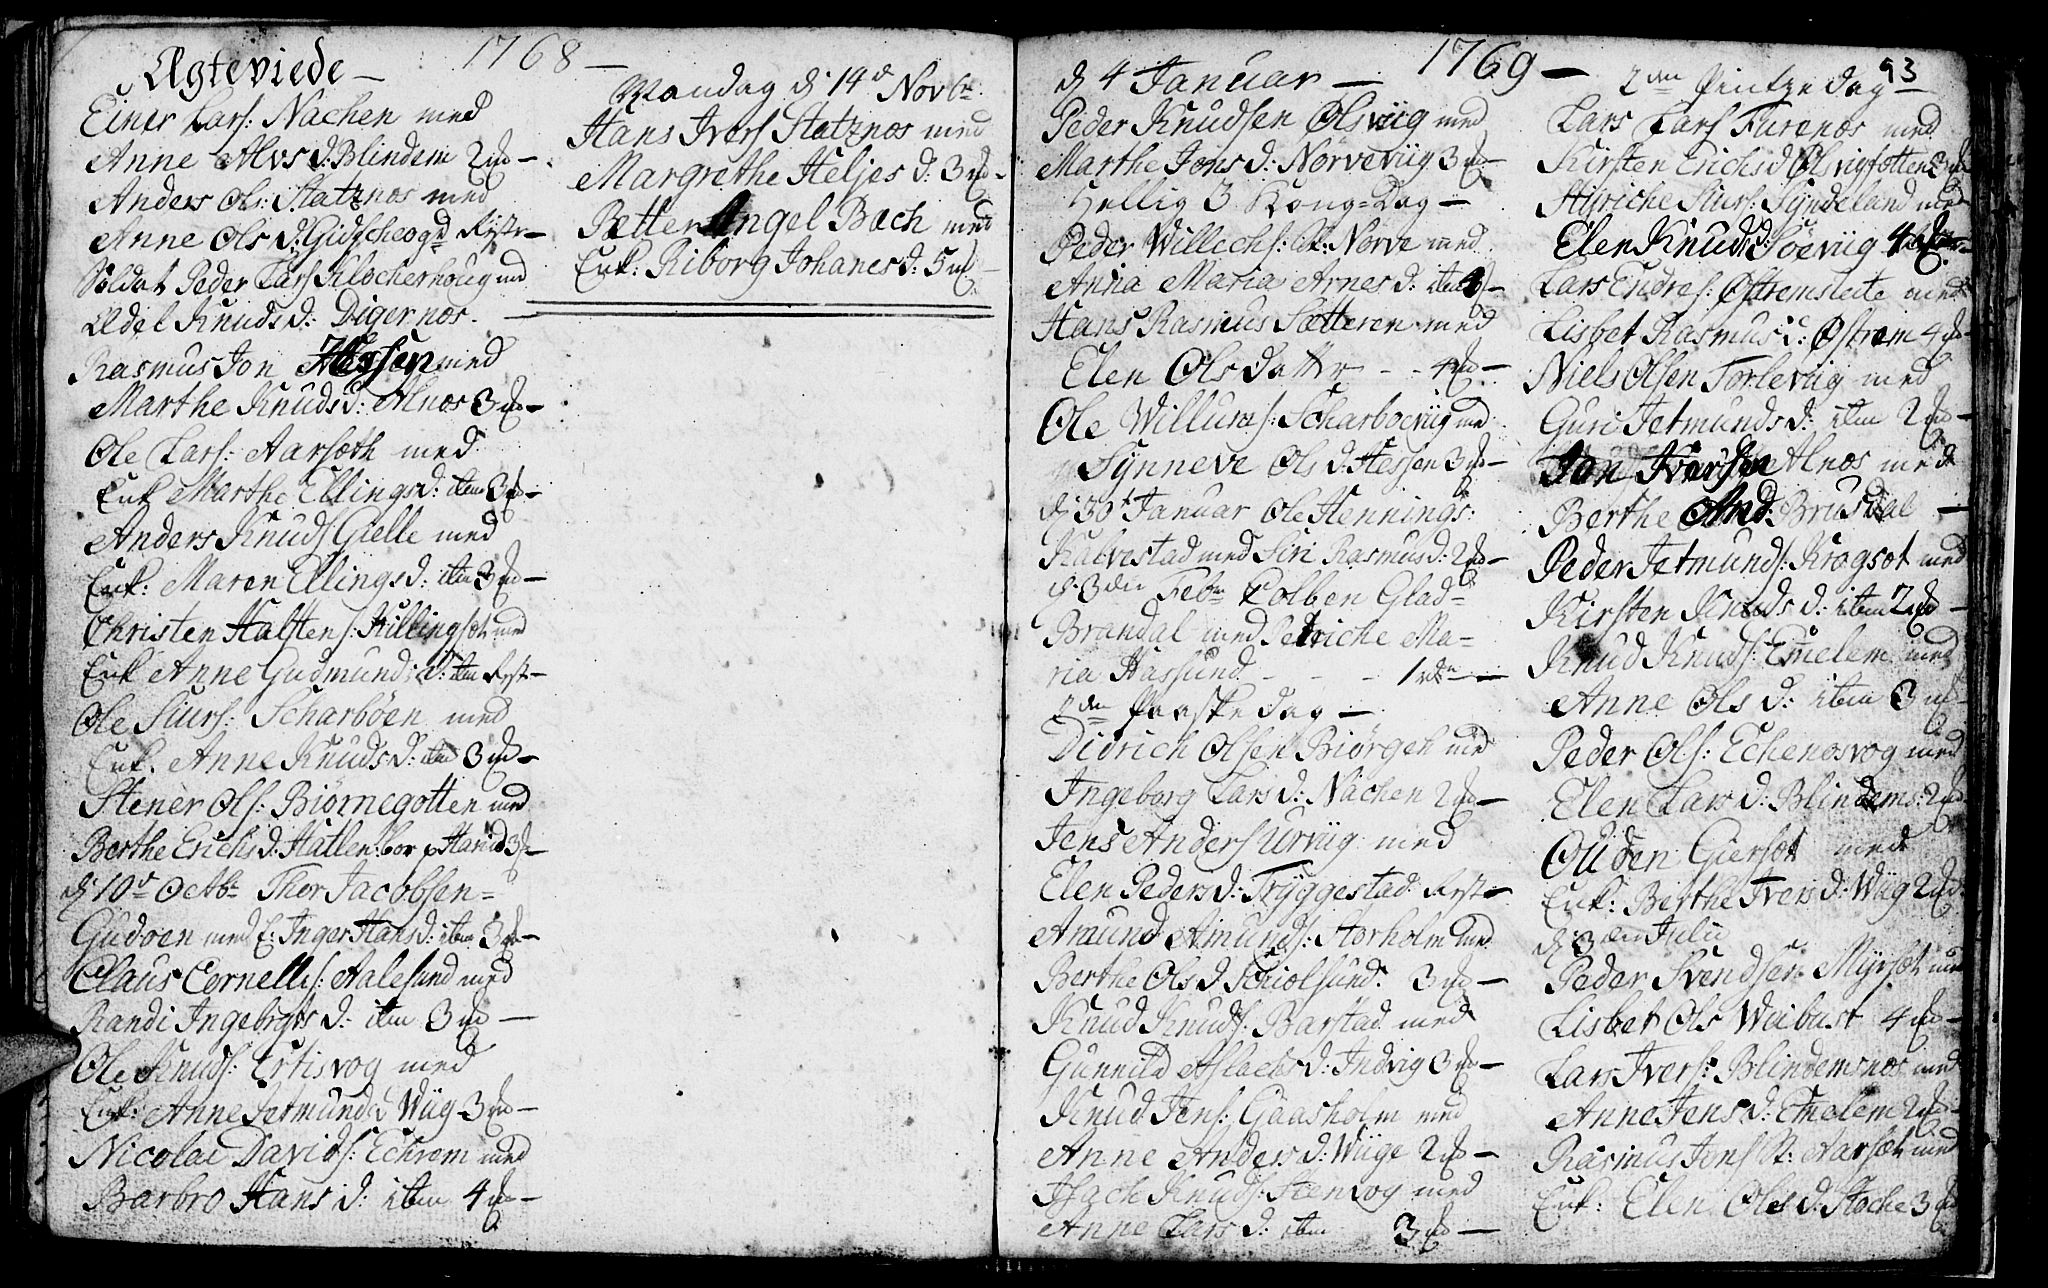 Ægteviede - 1768 -
Einer Lars: Nachen med
Anne Alvs d: Blindem 2
Anders Ols: Statznos med
Anne Ols d: Gidscheogd
Soldat Peder Lars Klocherhoug md
Ædel Knuds d: Digernos.
Rasmus Jon Hessen med
Marthe Knuds d: Alnos 3
Ole Lars: Aarsæth med
Enk Marthe Ellings d: item 3
Anders Knuds Gielle med
Enk: Maren Ellings d: item 3
Christen Halsten s: Killingsæt med
Enk Anne Gudmunds d: item
Ole Siurs: Scharbøen med
Enk. Anne Knuds d: item 3
Stener Ols: Biørnegotten med
Berthe Erichs d: Hatlen: bor p Harid 3
d 10d Octbr Thor Jacobsen=
Gudøen med E: Inger Hans d: item 3
Claus Cornelis: Aalesund med
Randi Ingebrgts d: item 3
Ole Knuds: Ertisvog med
Enk: Anne Jetmunds d Wiig 3
Nicolai Davids: Echrem med
Barbro Hans d: item 4
Mandag d 14d Novbr.
Hans Ivers Statznos med
Margrethe Heljes d: 3
Petter Angel Bach med
Enk: Riborg Johanes d: 5
1769 -
93
d 4 Januar -
Peder Knudsen Olsviig med
Marthe Jons d: Nørveviig 3
Hellig 3 Kong=Dag -
Peder Willechs: St: Nørve med
Anna Maria Arnes d: item
Hans Rasmus Sætteren med
Elen Olsdattr - - 4
Ole Willums: Scharboeviig md
Synneve Ols d. Hessen 3
d 30t Januar Ole Hennings:
Kalvestad med Siri Rasmus d: 2
d. 3den Febr Colben Glad=
Brandal med Petriche Ma=
ria Hassund - - - 1
2den Paaskedag -
Didrich Olsen Biørgeh md
Ingeborg Lars d: Nachen 2
Jens Anders Urviig med
Elen Peders d: Tryggestad
Amund Amunds: Storholm med
Berthe Ols d Schiolsund. 3
Knud Knuds: Barstad med
Gunnild Aslachs d: Indvig 3
Knud Jens: Gaasholm med
Anne Anders d: Wiige 2
Isach Knuds: Stenvog med
Anne Lars d: item 3
2den Pintzedag -
Lars Lars Furenos med
Kirsten Erichs d Olsvigfotten 3
Siurs: Syndeland med
Elen Knuds d: Soeviig 4
Lars Endres: Østremsleite med
Lisbet Rasmus d: Østrem 4
Niels Olsen Torleviig med
Guri Jetmunds d: item 2
Jon Iversen Alnos med
Berthe And: Brusdal -
Peder Jetmunds: Krogsæt med
Kirsten Knuds d: item 2
Knud Knuds: Emelem med
Anne Ols d: item 3
Peder Ols: Echenosvog med
Elen Lars d: Blindems: 2
Ouden Giersæt med
Enk: Berthe Ivers d: Wiig 2
d 3den Julii
Peder Svendsen Myrsæt md
Lisbet Ols Weibust 4
Lars Ivers: Blindemsnos med
Anne Jens d: Emelem 2
Rasmus Jons St: Aarsæt med
Enk: Elen Ols d: Stoche 3